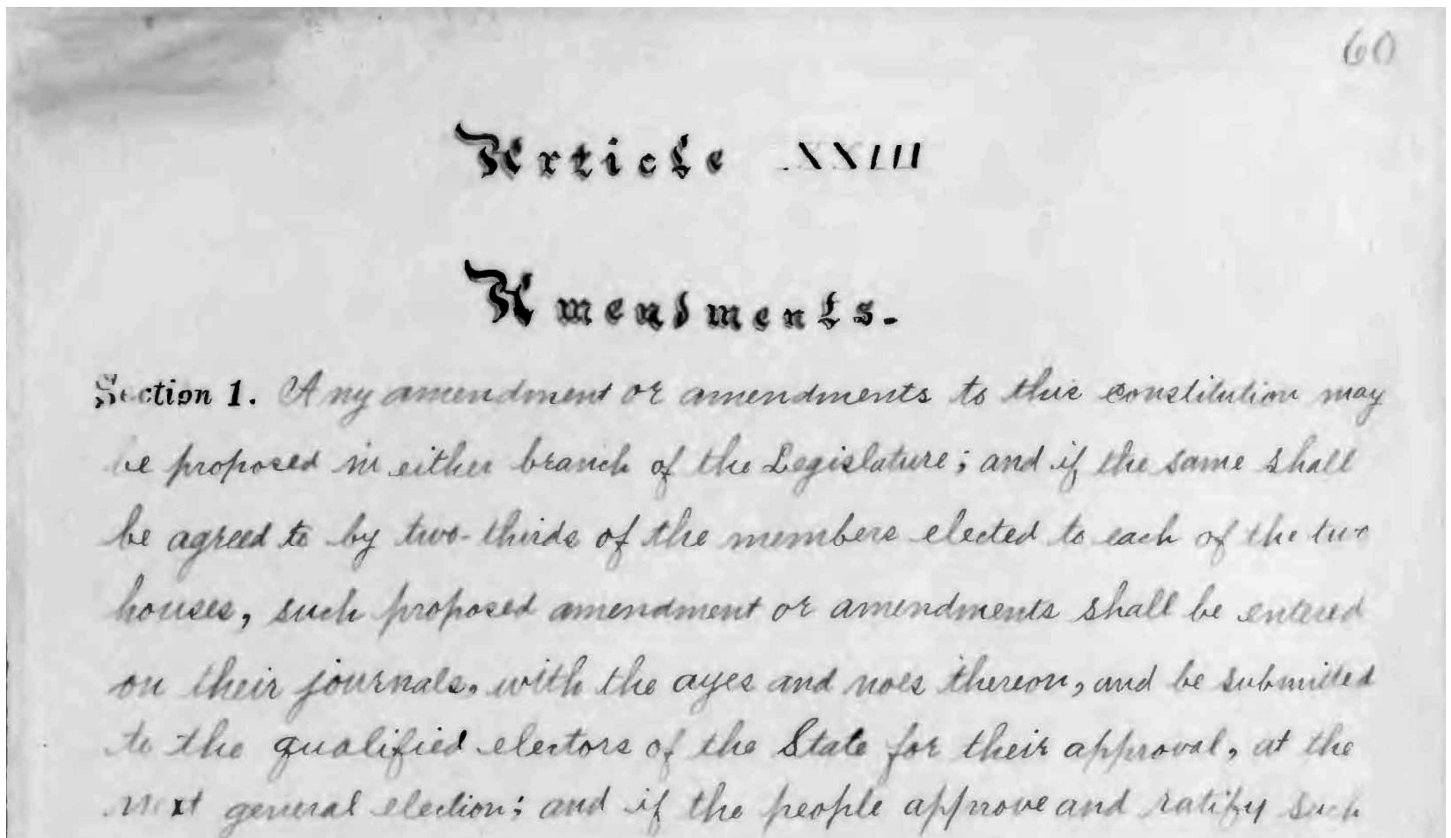 60
Article XXIII
Amendments.
Section 1. Any amendment or amendments to this constitution may
be proposed in either branch of the Legislature; and if the same shall
be agreed to by two-thirds of the members elected to each of the two
houses, such proposed amendment or amendments shall be entered
on their journals, with the ayes and noes thereon, and be submitted
to the qualified electors of the State for their approval, at the
next general election; and if the people approve and ratify such